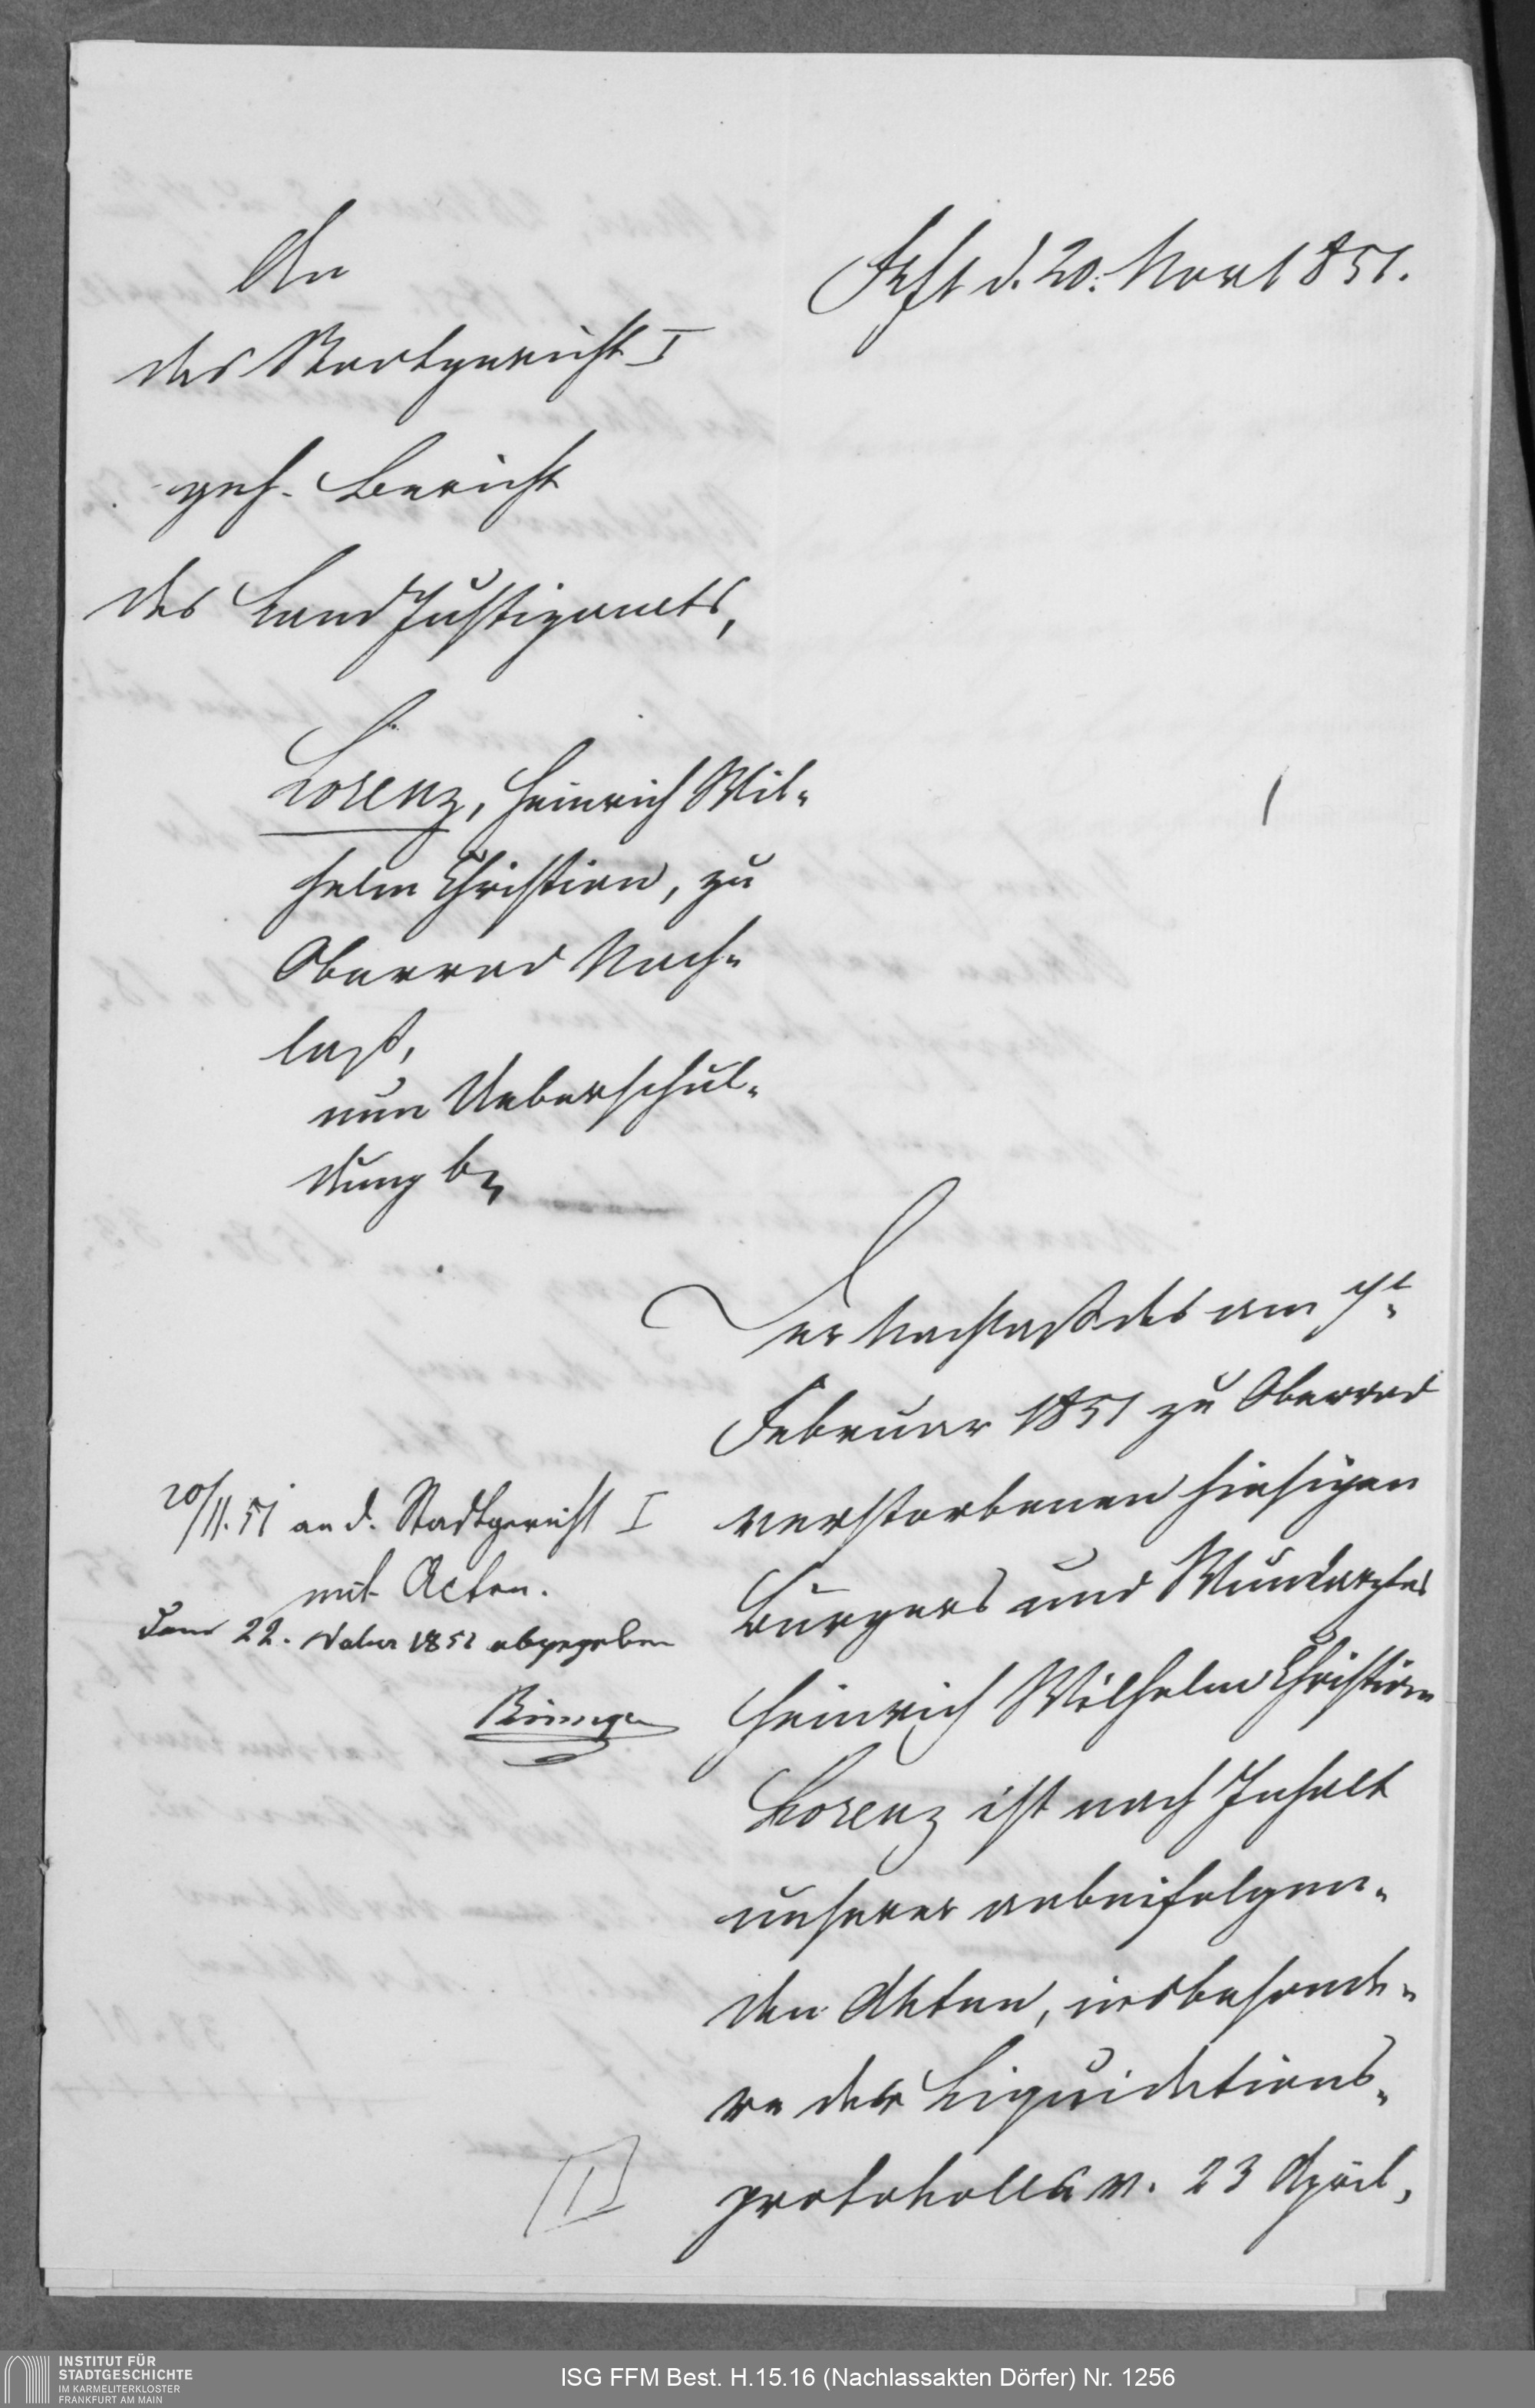 Frkft d. 20. Novr 1851.
An
das Stadtgericht I
geh. Bericht
des LandJustizamts,
Lorenz, Heinrich Wil-
helm Christian, zu
Oberrad Nach-
laß,
nun Ueberschul-
dung btr
1
Der Nachlaß des am 7t.
Februar 1851 zu Oberrad
verstorbenen hiesigen
Bürgers und Wundarztes
Heinrich Wilhelm Christian
Lorenz ist nach Inhalt
unserer anbeifolgen-
den Akten, insbesonde-
re des Liquidations-
protokolls v. 23 April,
20/11. 51 an d. Stadtgericht I
mit Acten.
22. 1851 abgegeben
INSTITUT FÜR
STADTGESCHICHTE
IM KARMELITERKLOSTER
FRANKFURT AM MAIN
ISG FFM Best. H.15.16 (Nachlassakten Dörfer) Nr. 1256